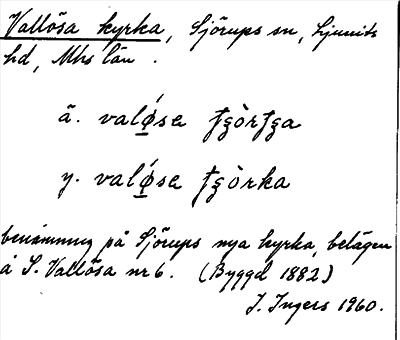 Vallösa kyrka, Sjörups sn, Ljunits
hd, Mhs län.
ä. valǿ̱se ʈʂòrʈʂa
y. valǿ̱se ʈʂòrka
benämning på Sjörups nya kyrka, belägen
å S. Vallösa nr 6. (Byggd 1882)
I. Ingers 1960.